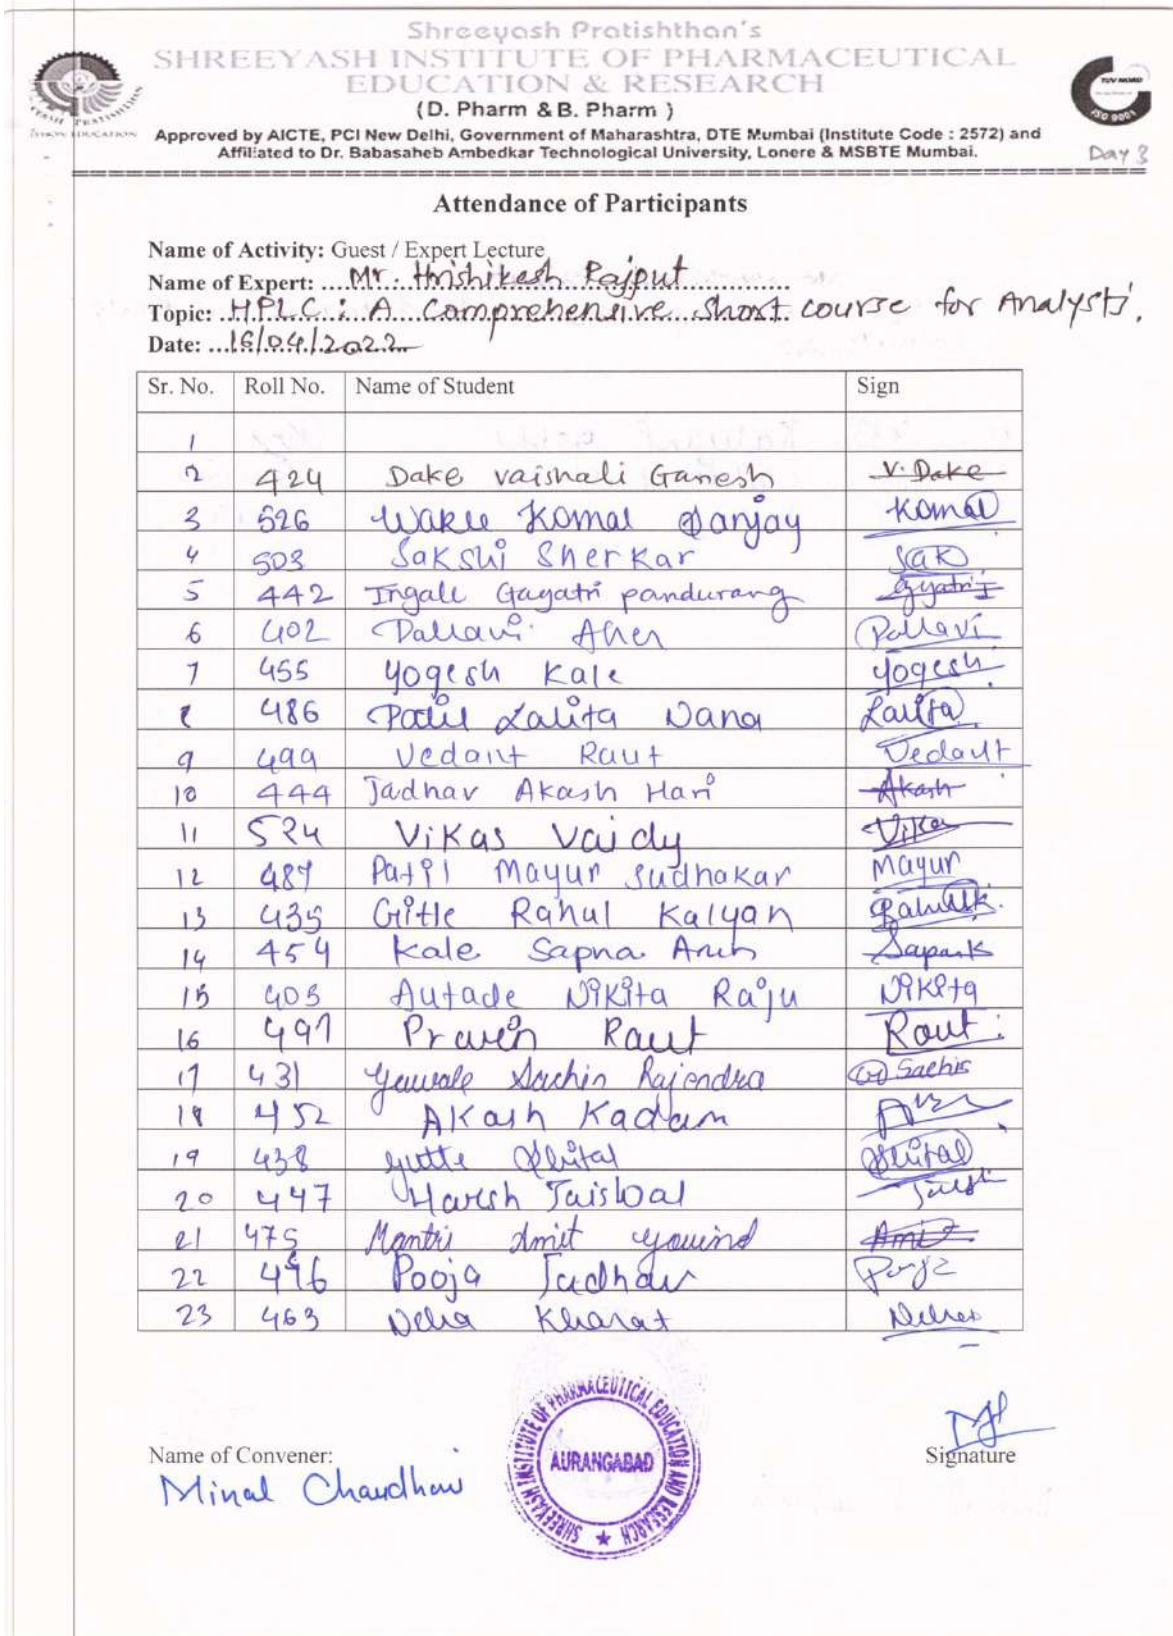 Shreeyash Pratishthan's
SHREEYASH INSTITUTE OF PHARMACEUTICAL
EDUCATION & RESEARCH
(D. Pharm & B. Pharm )
Approved by AICTE, PCI New Delhi, Government of Maharashtra, DTE Mumbai (Institute Code : 2572) and
Affiliated to Dr. Babasaheb Ambedkar Technological University, Lonere & MSBTE Mumbai.
TUV NORD
ISO 9001
Day 3
Attendance of Participants
Name of Activity: Guest / Expert Lecture
Name of Expert: ....Mr. Hrishikesh Rajput
Topic: HPLC : A Comprehensive short course for Analysts'.
Date: ...16/04/2022
Sr. No. Roll No. Name of Student Sign
1
2 424 Dake vaishali Ganesh V. Dake
3 526 Wakle Komal Sanjay Komal
4 503 Sakshi Sherkar Sak
5 442 Ingale Gayatri pandurang Gyatri I
6 402 Pallavi Aher Pallavi
7 455 Yogesh Kale Yogesh
8 486 Patil Lalita Nana Lalita
9 499 Vedant Raut Vedant
10 444 Jadhav Akash Hari Akash
11 524 Vikas Vaidy Vikas
12 487 Patil Mayur Sudhakar Mayur
13 435 Gitle Rahul Kalyan
14 454 Kale Sapna Arun
15 405 Autade Nikita Raju Nikita
16 497 Pravin Raut Raut
17 431 Sachin Rajendra Sachin
18 452 Akash Kadam
19 438 Gutte Shital Shital
20 447 Harsh Jaiswal
21 475 Mantri Amit Govind Amit
22 496 Pooja Jadhav Pooja
23 463 Neha Kharat Neha
Name of Convener:
Minal Chaudhari
Signature
SHREEYASH INSTITUTE OF PHARMACEUTICAL EDUCATION AND RESEARCH
AURANGABAD